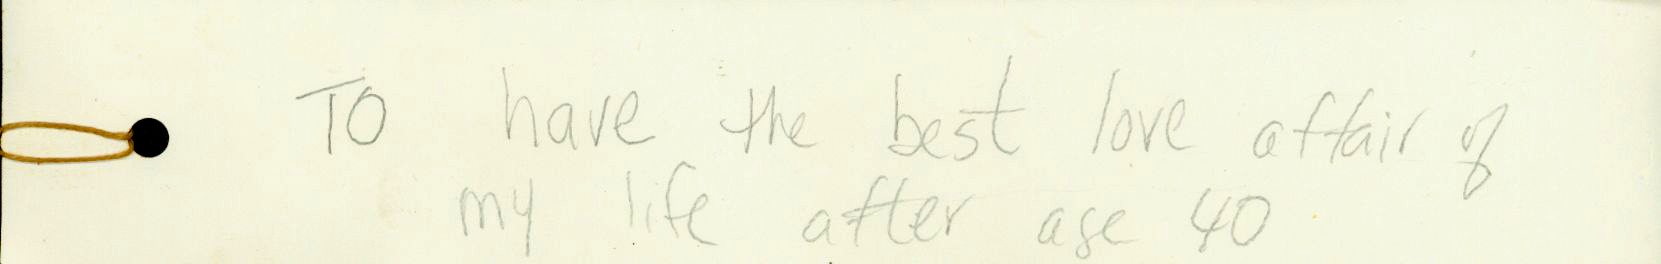 To have the best love affair of
my life after age 40